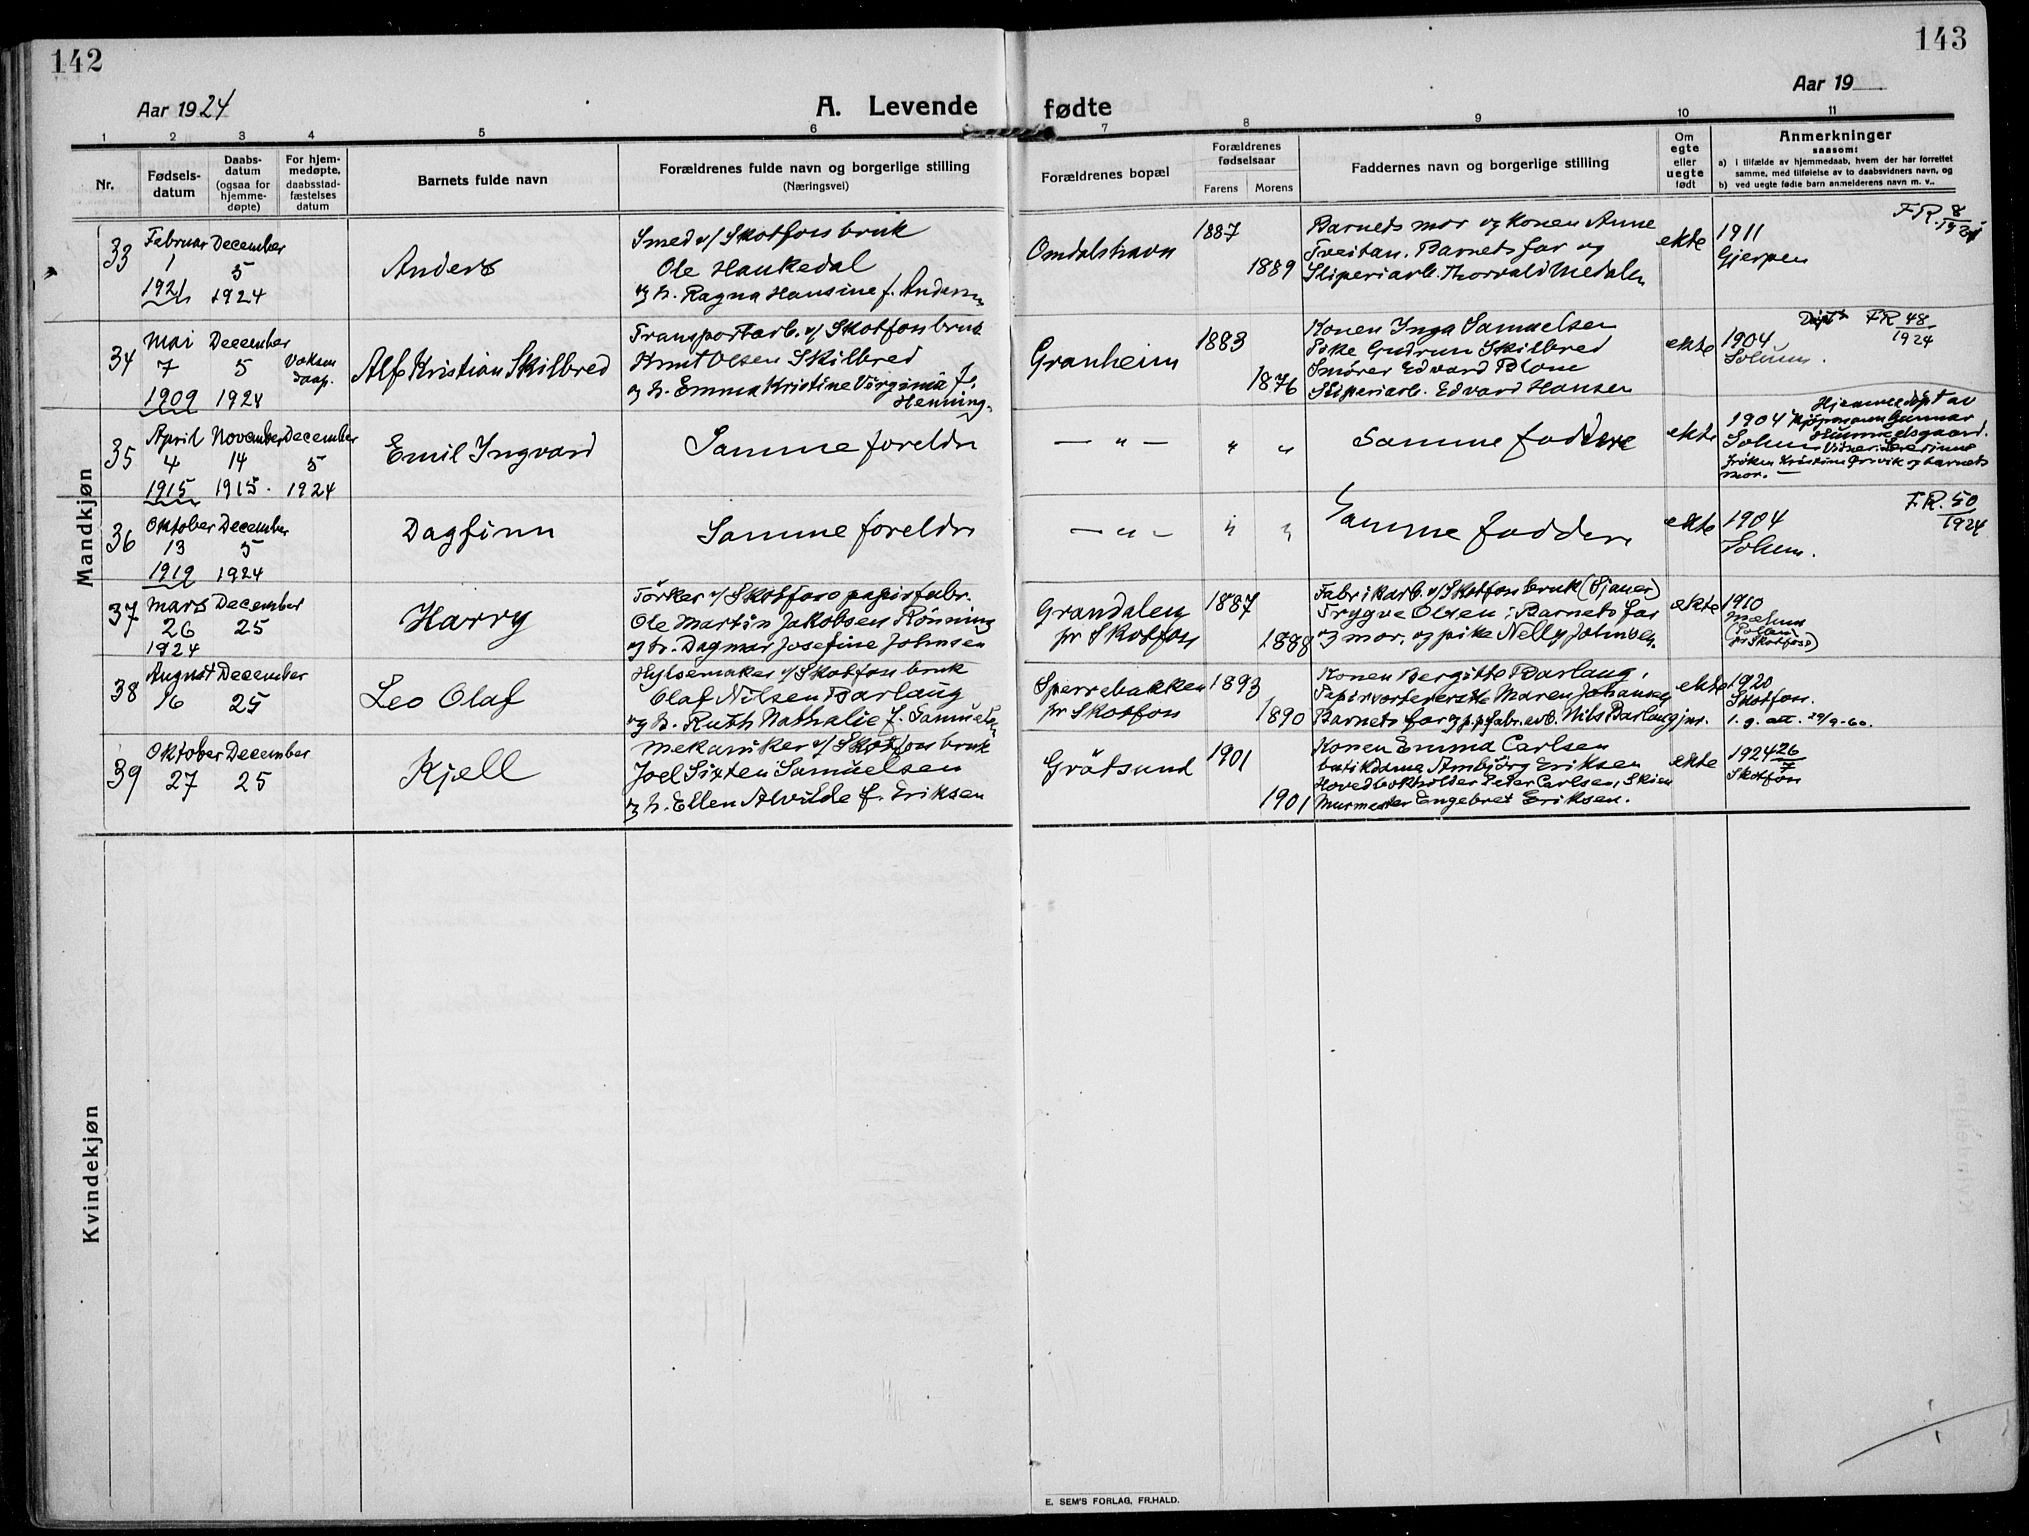 142
143
Aar 1924
A. Levende fødte
Aar 19
1 2 3 4 5 6 7 8 9 10 11
Nr.
Fødsels-
datum
Daabs-
datum
(ogsaa for
hjemme-
døpte)
For hjem-
medøpte,
daabsstad-
fæstelses
datum
Barnets fulde navn
Forældrenes fulde navn og borgerlige stilling
(Næringsvei)
Forældrenes bopæl
Forældrenes
fødselsaar
Farens Morens
Faddernes navn og borgerlige stilling
Om
egte
eller
uegte
født
Anmerkninger
saasom:
a) i tilfælde av hjemmedaab, hvem der har forrettet
samme, med tilføielse av to daabsvidners navn, og
b) ved uegte fødte barn anmelderens navn m. v..
Mandkjøn
33
Februar
1
1921
December
5
1924
Anders
Smed v/ Skotfoss bruk
Ole Haukedal
og h. Ragna Hansine f. Andersen
Omdalshavn
1887
1889
Barnets mor og konen Anne
Tveitan. Barnets far og
Sliperiarb. Thorvald Medalen
ekte
1911
Gjerpen
F.R. 8
34
Mai
7
1909
December
5
1924
Voksen
daap.
Alf Kristian Skilbred
Transportarb. v/ Skotfoss bruk
Knut Olsen Skilbred
og h. Emma Kristine Virginia f.
Henning
Granheim
1883
1876
Konen Inga Samuelsen
Pike Gudrun Skilbred
Smører Edvard Blom
Sliperiarb. Edvard Hansen
ekte
1904
Solum.
FR 48
1924
35
April
4
1915
November
14
1915.
December
5
1924
Emil Ingvard
Samme foreldre
— „ —
„ „
Samme faddere
ekte
1904
Solum
Hjemmedøpt av
mor. —
36
Oktober
13
1919
December
5
1924
Dagfinn
Samme foreldre
— „ —
„ „
Samme faddere
ekte
1904
Solum.
F.R. 50
1924
37
Mars
26
1924
December
25
Harry
Tørker v/ Skotfoss papirfabr.
Ole Martin Jakobsen Rönning
og h. Dagmar Josefine Johnsen
Grandalen
pr Skotfoss
1887
1888
Fabrikarb. v/ Skotfoss bruk (Sjauer)
Trygve Olsen; Barnets far
og mor. og pike Nelly Johnsen.
ekte
1910
Mælum
pr Skotfoss)
38
August
16
December
25
Leo Olaf
Hylsemaker v/ Skotfoss bruk
Olaf Nilsen Barlaug
og h. Ruth Nathalie f. Samuelsen
Sperrebakken
pr Skotfoss
1893
1890
Konen Bergitte Barlaug,
Papirsortererske Maren Johansen,
Barnets far og p.p.fabr.arb. Nils Barlaug jnr.
ekte
1920
Skotfoss.
1. g. att. 29/9-60.
39
Oktober
27
December
25
Kjell
Mekaniker v/ Skotfoss bruk
Joel Sixten Samuelsen
og h. Ellen Alvilde f. Eriksen
Gråtsund
1901
1901
Konen Emma Carlsen
butikdame Arnbjörg Eriksen
Hovedbokholder Peter Carlsen, Skien
Murmester Engebret Eriksen.
ekte
1924 26
7
Skotfoss
Kvindekjøn
E. SEM'S FORLAG, FR.HALD.